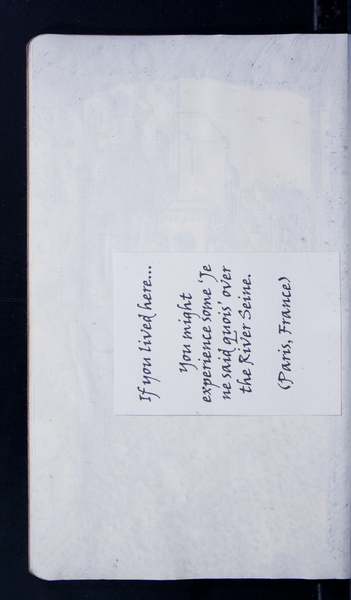 If you lived here...
You might
experience some 'Je
ne said quois' over
the River Seine.
(Paris, France)